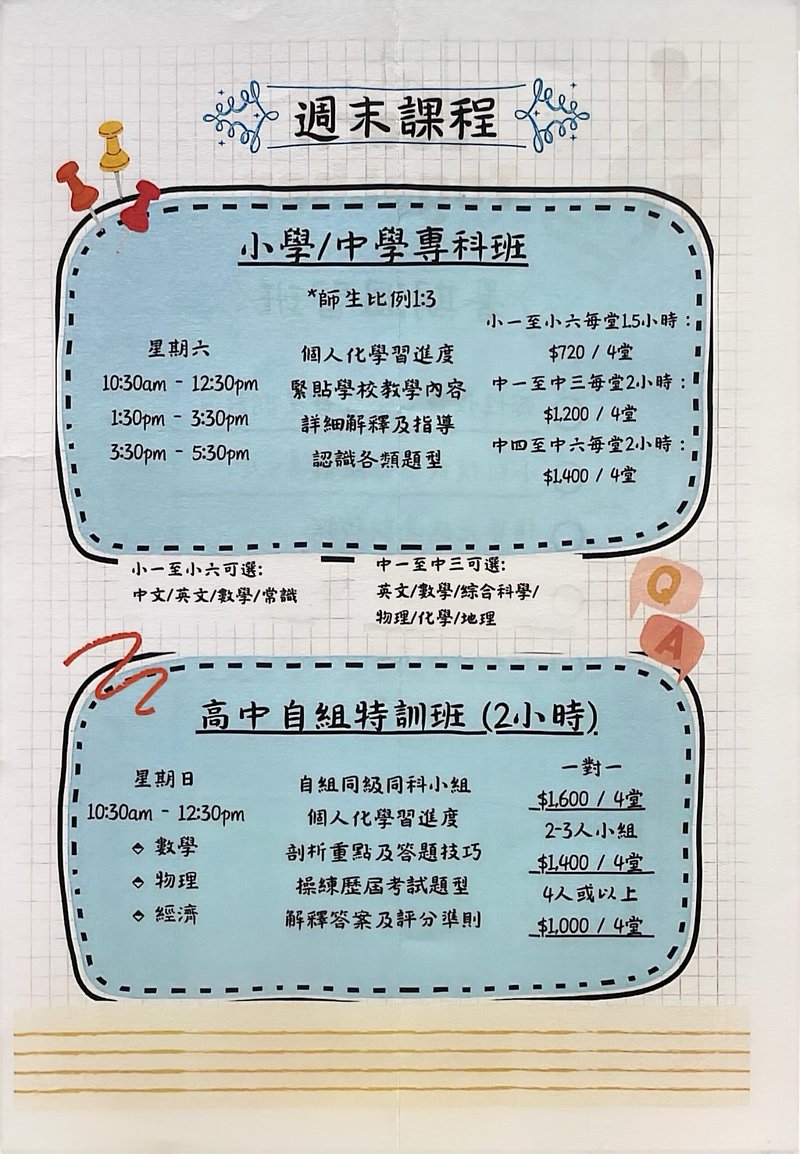 週末課程
小學/中學專科班
*師生比例1:3
星期六
10:30am - 12:30pm
1:30pm - 3:30pm
3:30pm - 5:30pm
個人化學習進度
緊貼學校教學內容
詳細解釋及指導
認識各類題型
小一至小六每堂1.5小時:
$720 / 4堂
中一至中三每堂2小時:
$1,200 / 4堂
中四至中六每堂2小時:
$1,400 / 4堂
小一至小六可選:
中文/英文/數學/常識
中一至中三可選:
英文/數學/綜合科學/
物理/化學/地理
Q
A
高中自組特訓班 (2小時)
星期日
10:30am - 12:30pm
數學
物理
經濟
自組同級同科小組
個人化學習進度
剖析重點及答題技巧
操練歷屆考試題型
解釋答案及評分準則
一對一
$1,600 / 4堂
2-3人小組
$1,400 / 4堂
4人或以上
$1,000 / 4堂